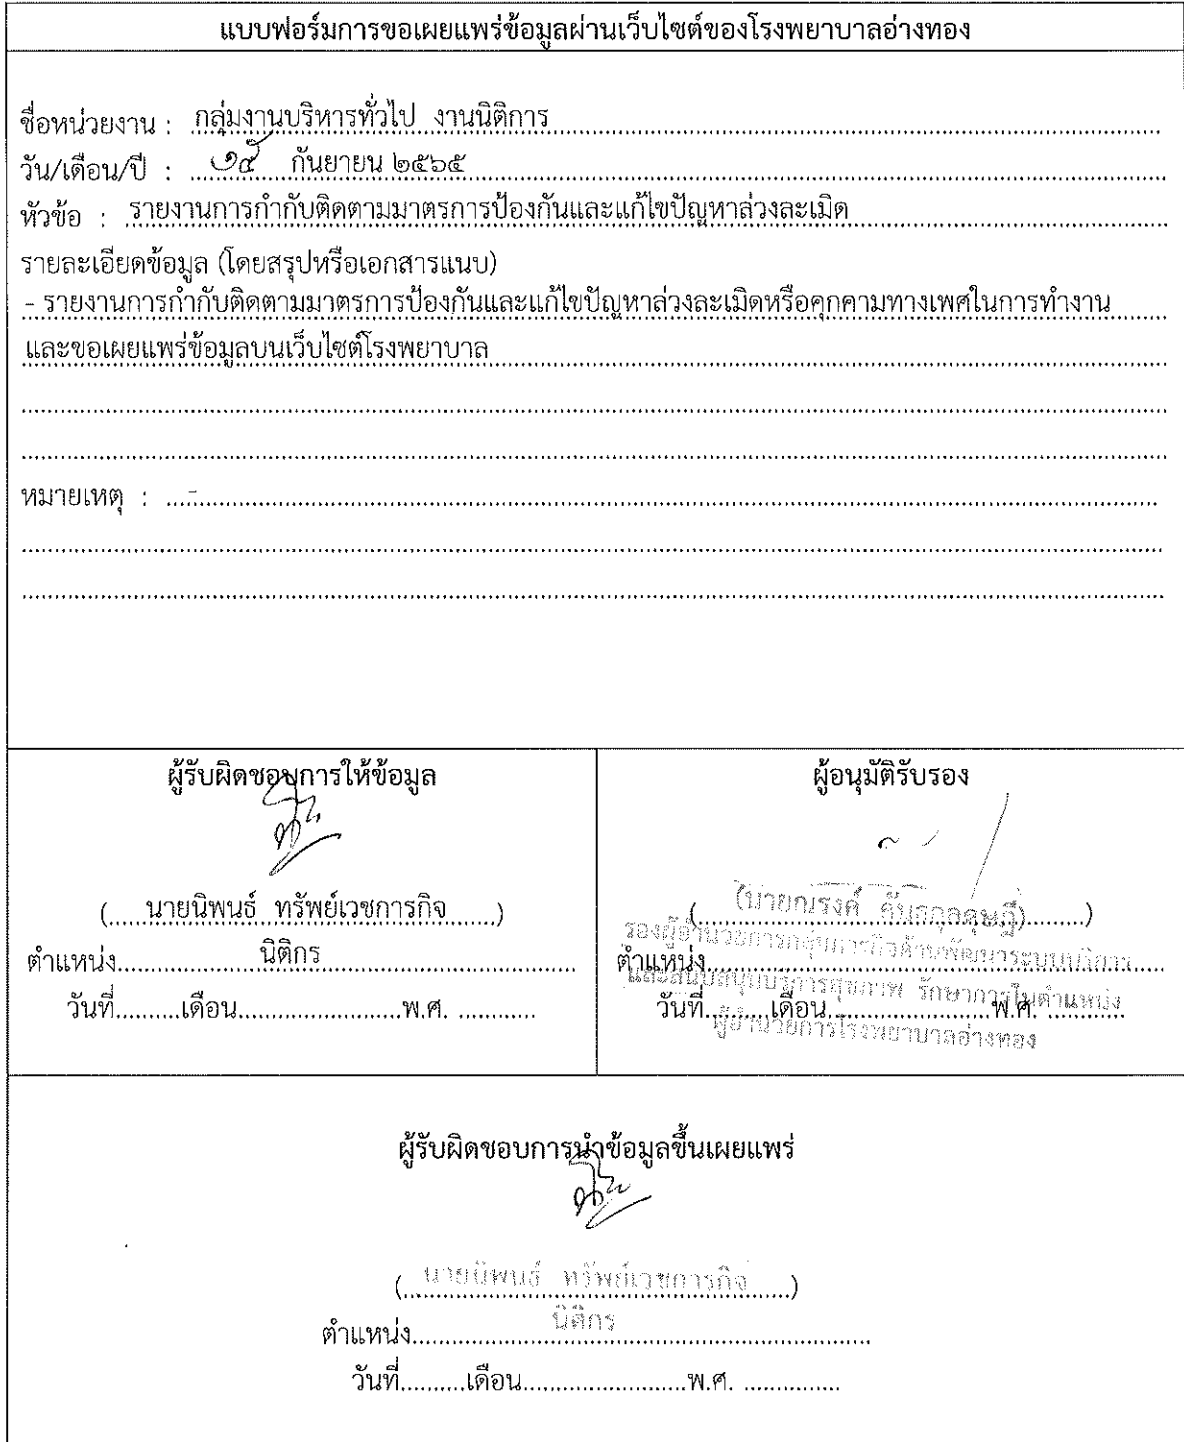 แบบฟอร์มการขอเผยแพร่ข้อมูลผ่านเว็บไซต์ของโรงพยาบาลอ่างทอง
ชื่อหน่วยงาน : กลุ่มงานบริหารทั่วไป งานนิติการ
วัน/เดือน/ปี : กันยายน ๒๕๖๕
หัวข้อ : รายงานการกำกับติดตามมาตรการป้องกันและแก้ไขปัญหาล่วงละเมิด
รายละเอียดข้อมูล (โดยสรุปหรือเอกสารแนบ)
- รายงานการกำกับติดตามมาตรการป้องกันและแก้ไขปัญหาล่วงละเมิดหรือคุกคามทางเพศในการทำงาน
และขอเผยแพร่ข้อมูลบนเว็บไซต์โรงพยาบาล
หมายเหตุ : -
ผู้รับผิดชอบการให้ข้อมูล
(นายนิพนธ์ ทรัพย์เวชการกิจ)
ตำแหน่ง นิติกร
วันที่..........เดือน.........................พ.ศ. ............
ผู้อนุมัติรับรอง
(นายณรงค์)
รองผู้อำนวยการกลุ่มภารกิจด้านพัฒนาระบบบริการ
ตำแหน่ง
และสนับสนุนบริการสุขภาพ รักษาการในตำแหน่ง
วันที่..........เดือน.........................พ.ศ. ............
ผู้อำนวยการโรงพยาบาลอ่างทอง
ผู้รับผิดชอบการนำข้อมูลขึ้นเผยแพร่
(นายนิพนธ์ ทรัพย์เวชการกิจ)
ตำแหน่ง นิติกร
วันที่..........เดือน.........................พ.ศ. ...............